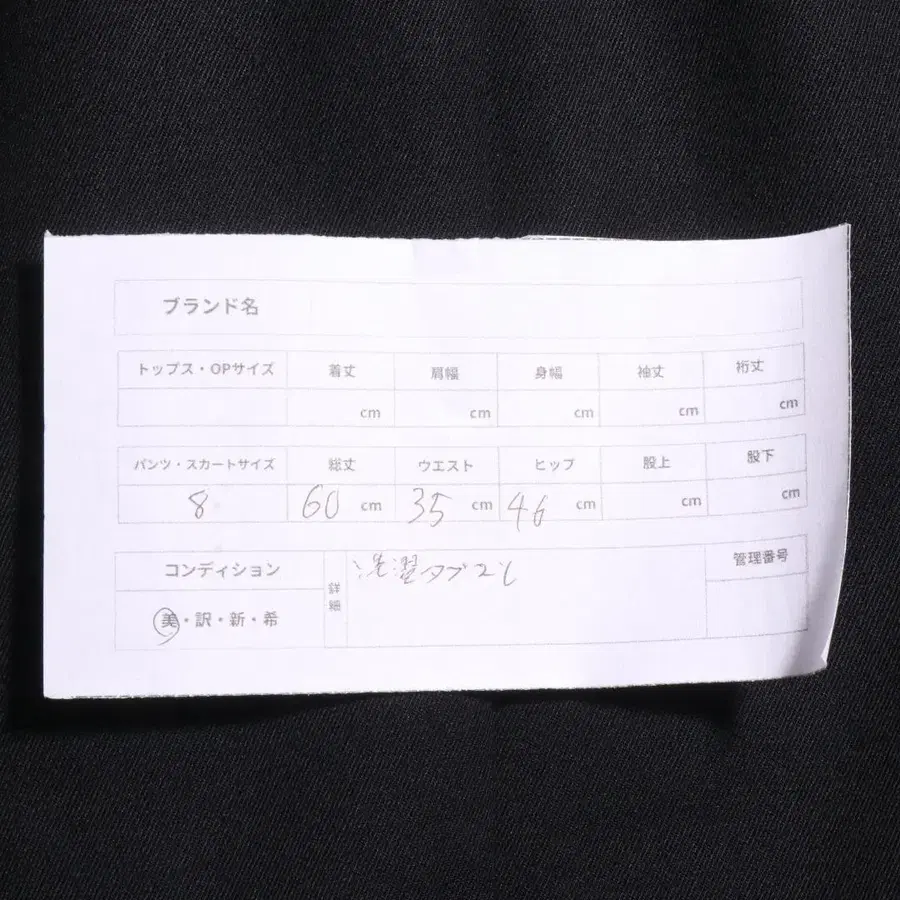 ブランド名
トップス・OPサイズ 着丈 肩幅 身幅 袖丈 裄丈
cm cm cm cm cm
パンツ・スカートサイズ 総丈 ウエスト ヒップ 股上 股下
8 60 cm 35 cm 46 cm cm cm
コンディション 詳細 洗濯タグなし 管理番号
美・訳・新・希